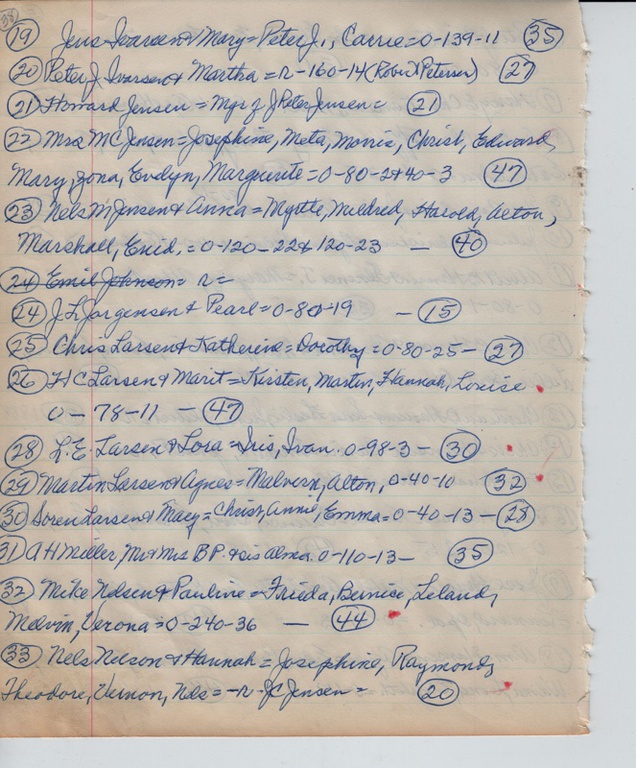 38
(19) Jens Ivarsen & Mary = Peter J., Carrie = 0-139-11 (35)
(20) Peter J Ivarsen & Martha = r-160-14 (Robert Petersen) (27)
(21) Howard Jensen = Mgr of J Peter Jensen = (21)
(22) Mrs MC Jensen = Josephine, Meta, Morris, Christ, Edward,
Mary, Zona, Evelyn, Marguerite = 0-80-2 & 40-3 (47)
(23) Nels M Jensen & Anna = Myrtle, Mildred, Harold, Alton,
Marshall, Enid, = 0-120-22 & 120-23 — (40)
(24) Emil Johnson = r =
(24) J.L. Jorgensen & Pearl = 0-80-19 - (15)
(25) Chris Larsen & Katherine = Dorothy = 0-80-25 - (27)
(26) H C Larsen & Marit = Kirsten, Martin, Hannah, Louise
0 - 78-11 - (47)
(28) L.E. Larsen & Lora = Iris, Ivan. 0-98-3 - (30)
(29) Martin Larsen & Agnes = Malvern, Alton, 0-40-10 (32)
(30) Soren Larsen & Macy = Christ, Annie, Emma = 0-40-13 - (28)
(31) A H Miller, Mr & Mrs BP. & sis Alma. 0-110-13 - (35)
(32) Mike Nelsen & Pauline = Frieda, Bernise, Leland,
Melvin, Verona = 0-240-36 — (44)
(33) Nels Nelson & Hannah = Josephine, Raymond,
Theodore, Vernon, Nels = -r- JC Jensen = (20)